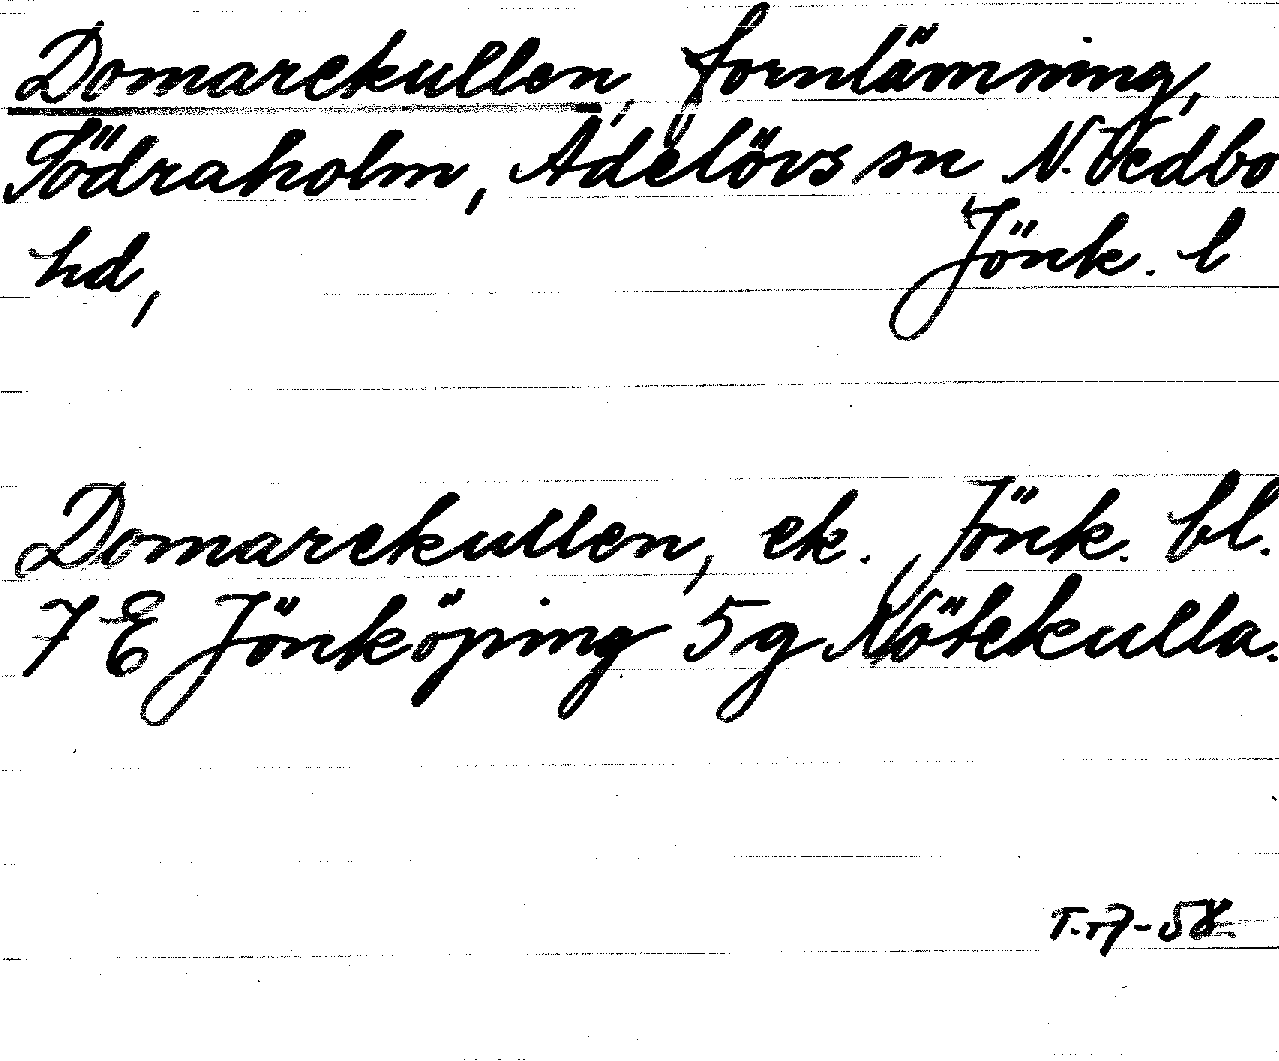 Domarekullen, fornlämning,
Södraholm, Adelövs sn N. Vedbo
hd, Jönk. l
Domarekullen, ek. Jönk. bl.
7 E Jönköping 5g Nötekulla.